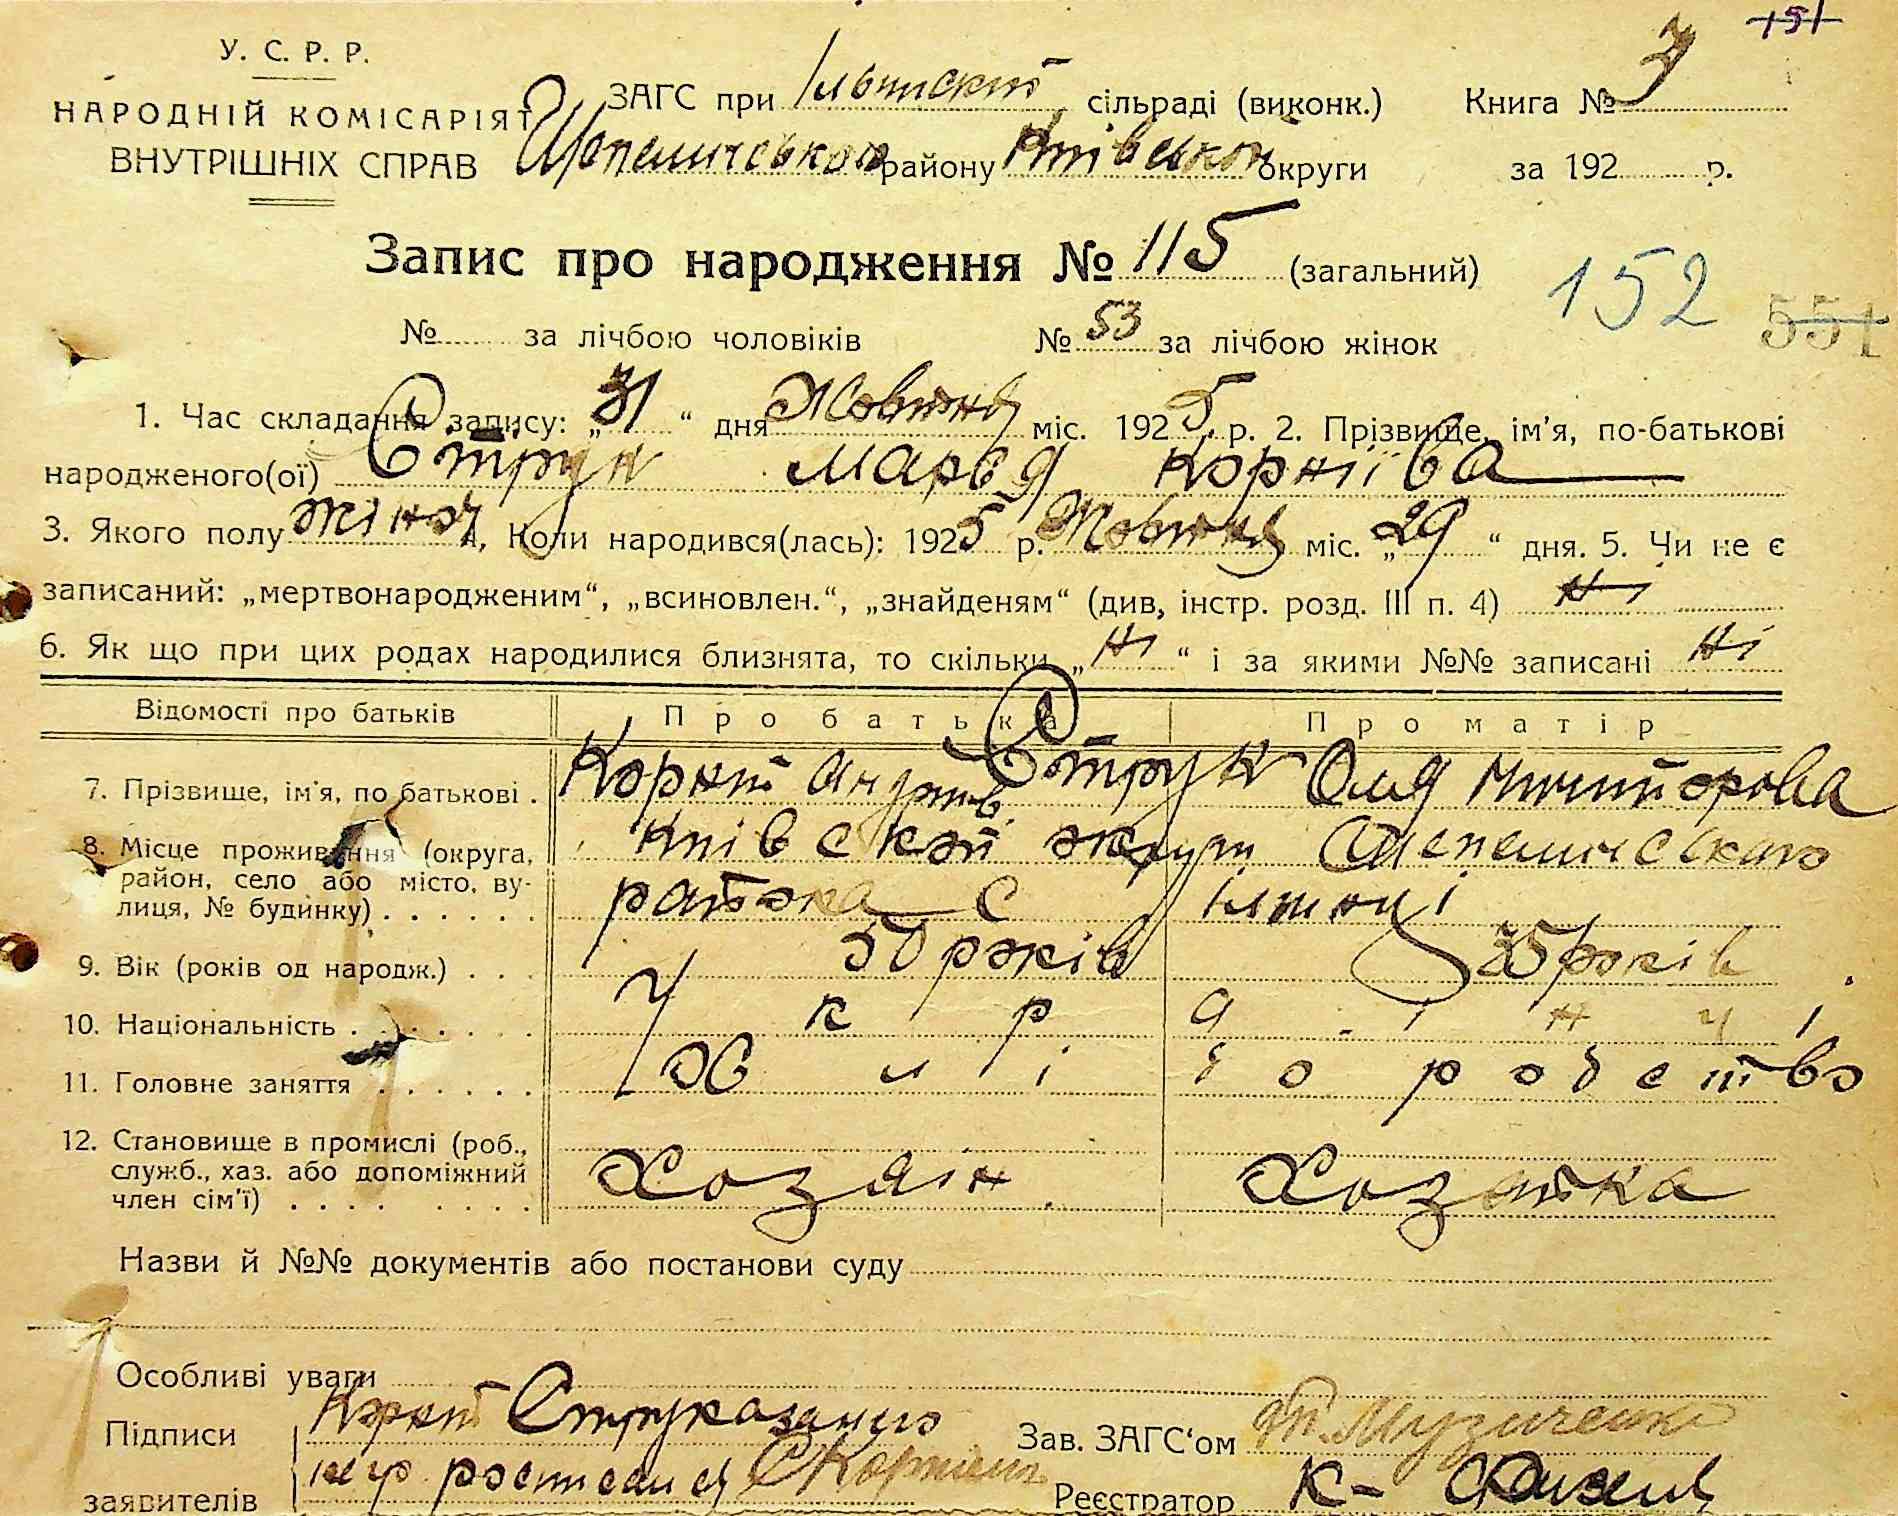 151
У. С. Р. Р.
НАРОДНІЙ КОМІСАРІЯТ
ВНУТРІШНІХ СПРАВ
ЗАГС при сільраді (виконк.)
району Київської округи
Книга №
за 192 р.
Запис про народження № 115 (загальний)
152
551
№ за лічбою чоловіків № 53 за лічбою жінок
1. Час складання запису: „31“ дня Жовтня міс. 1925 р. 2. Прізвище, ім'я, по-батькові
народженого(ої) Струк Марія Корніїва
3. Якого полу жіноч 4, Коли народився(лась): 1925 р. Жовтня міс. „29“ дня. 5. Чи не є
записаний: „мертвонародженим“, „всиновлен.“, „знайденям“ (див, інстр. розд. III п. 4) Ні
6. Як що при цих родах народилися близнята, то скільки „Ні“ і за якими №№ записані Ні
Відомості про батьків Про батька Про матір
7. Прізвище, ім'я, по батькові . Корній Андріїв Струк Оля
8. Місце проживання (округа,
район, село або місто, ву-
лиця, № будинку) . . . . . .
Київскої округи
района с
9. Вік (років од народж.) . . . 50 років 35 років
10. Національність . . . . . . . Українці
11. Головне заняття . . . . . . Хліборобство
12. Становище в промислі (роб.,
служб., хаз. або допоміжний
член сім'ї) . . . . . . . .
Хозяін Хозяйка
Назви й №№ документів або постанови суду
Особливі уваги
Підписи
заявителів
Корній Струк
Зав. ЗАГС'ом Музиченко
Реєстратор